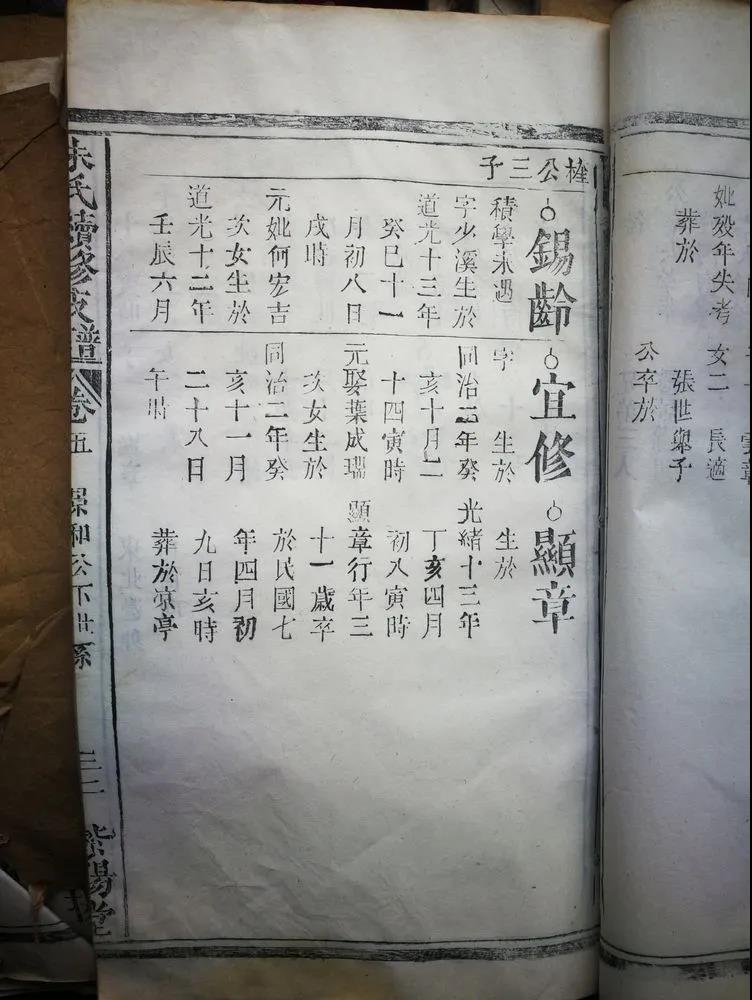 妣歿年失考
葬於
女二 長適
張世興子
公卒於
公三子
錫齡
積學未遇
字少溪生於
道光十三年
癸巳十一
月初八日
戌時
元妣何宏吉
次女生於
道光十二年
壬辰六月
宜修
字 生於
同治二年癸
亥十月二
十四寅時
元娶葉成瑞
次女生於
同治二年癸
亥十一月
二十八日
午時
顯章
生於
光緒十三年
丁亥四月
初八寅時
顯章行年三
十一歲卒
於民國七
年四月初
九日亥時
葬於凉亭
朱氏續修支譜
卷五
和公下世系
紫陽堂